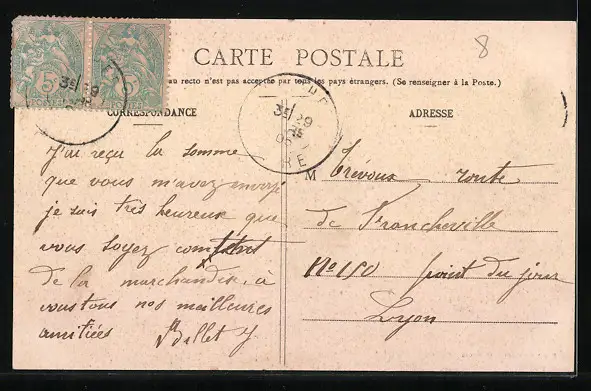 8
CARTE POSTALE
au recto n'est pas acceptée par tous les pays étrangers. (Se renseigner à la Poste.)
CORRESPONDANCE
ADRESSE
J'ai reçu la somme
que vous m'avez envoyé
je suis très heureux que
vous soyez content
de la marchandise, à
vous tous nos meilleures
amitiées Billet J
M Trévoux route
de Francheville
No 150 point du jour
Lyon
5 5
POSTES